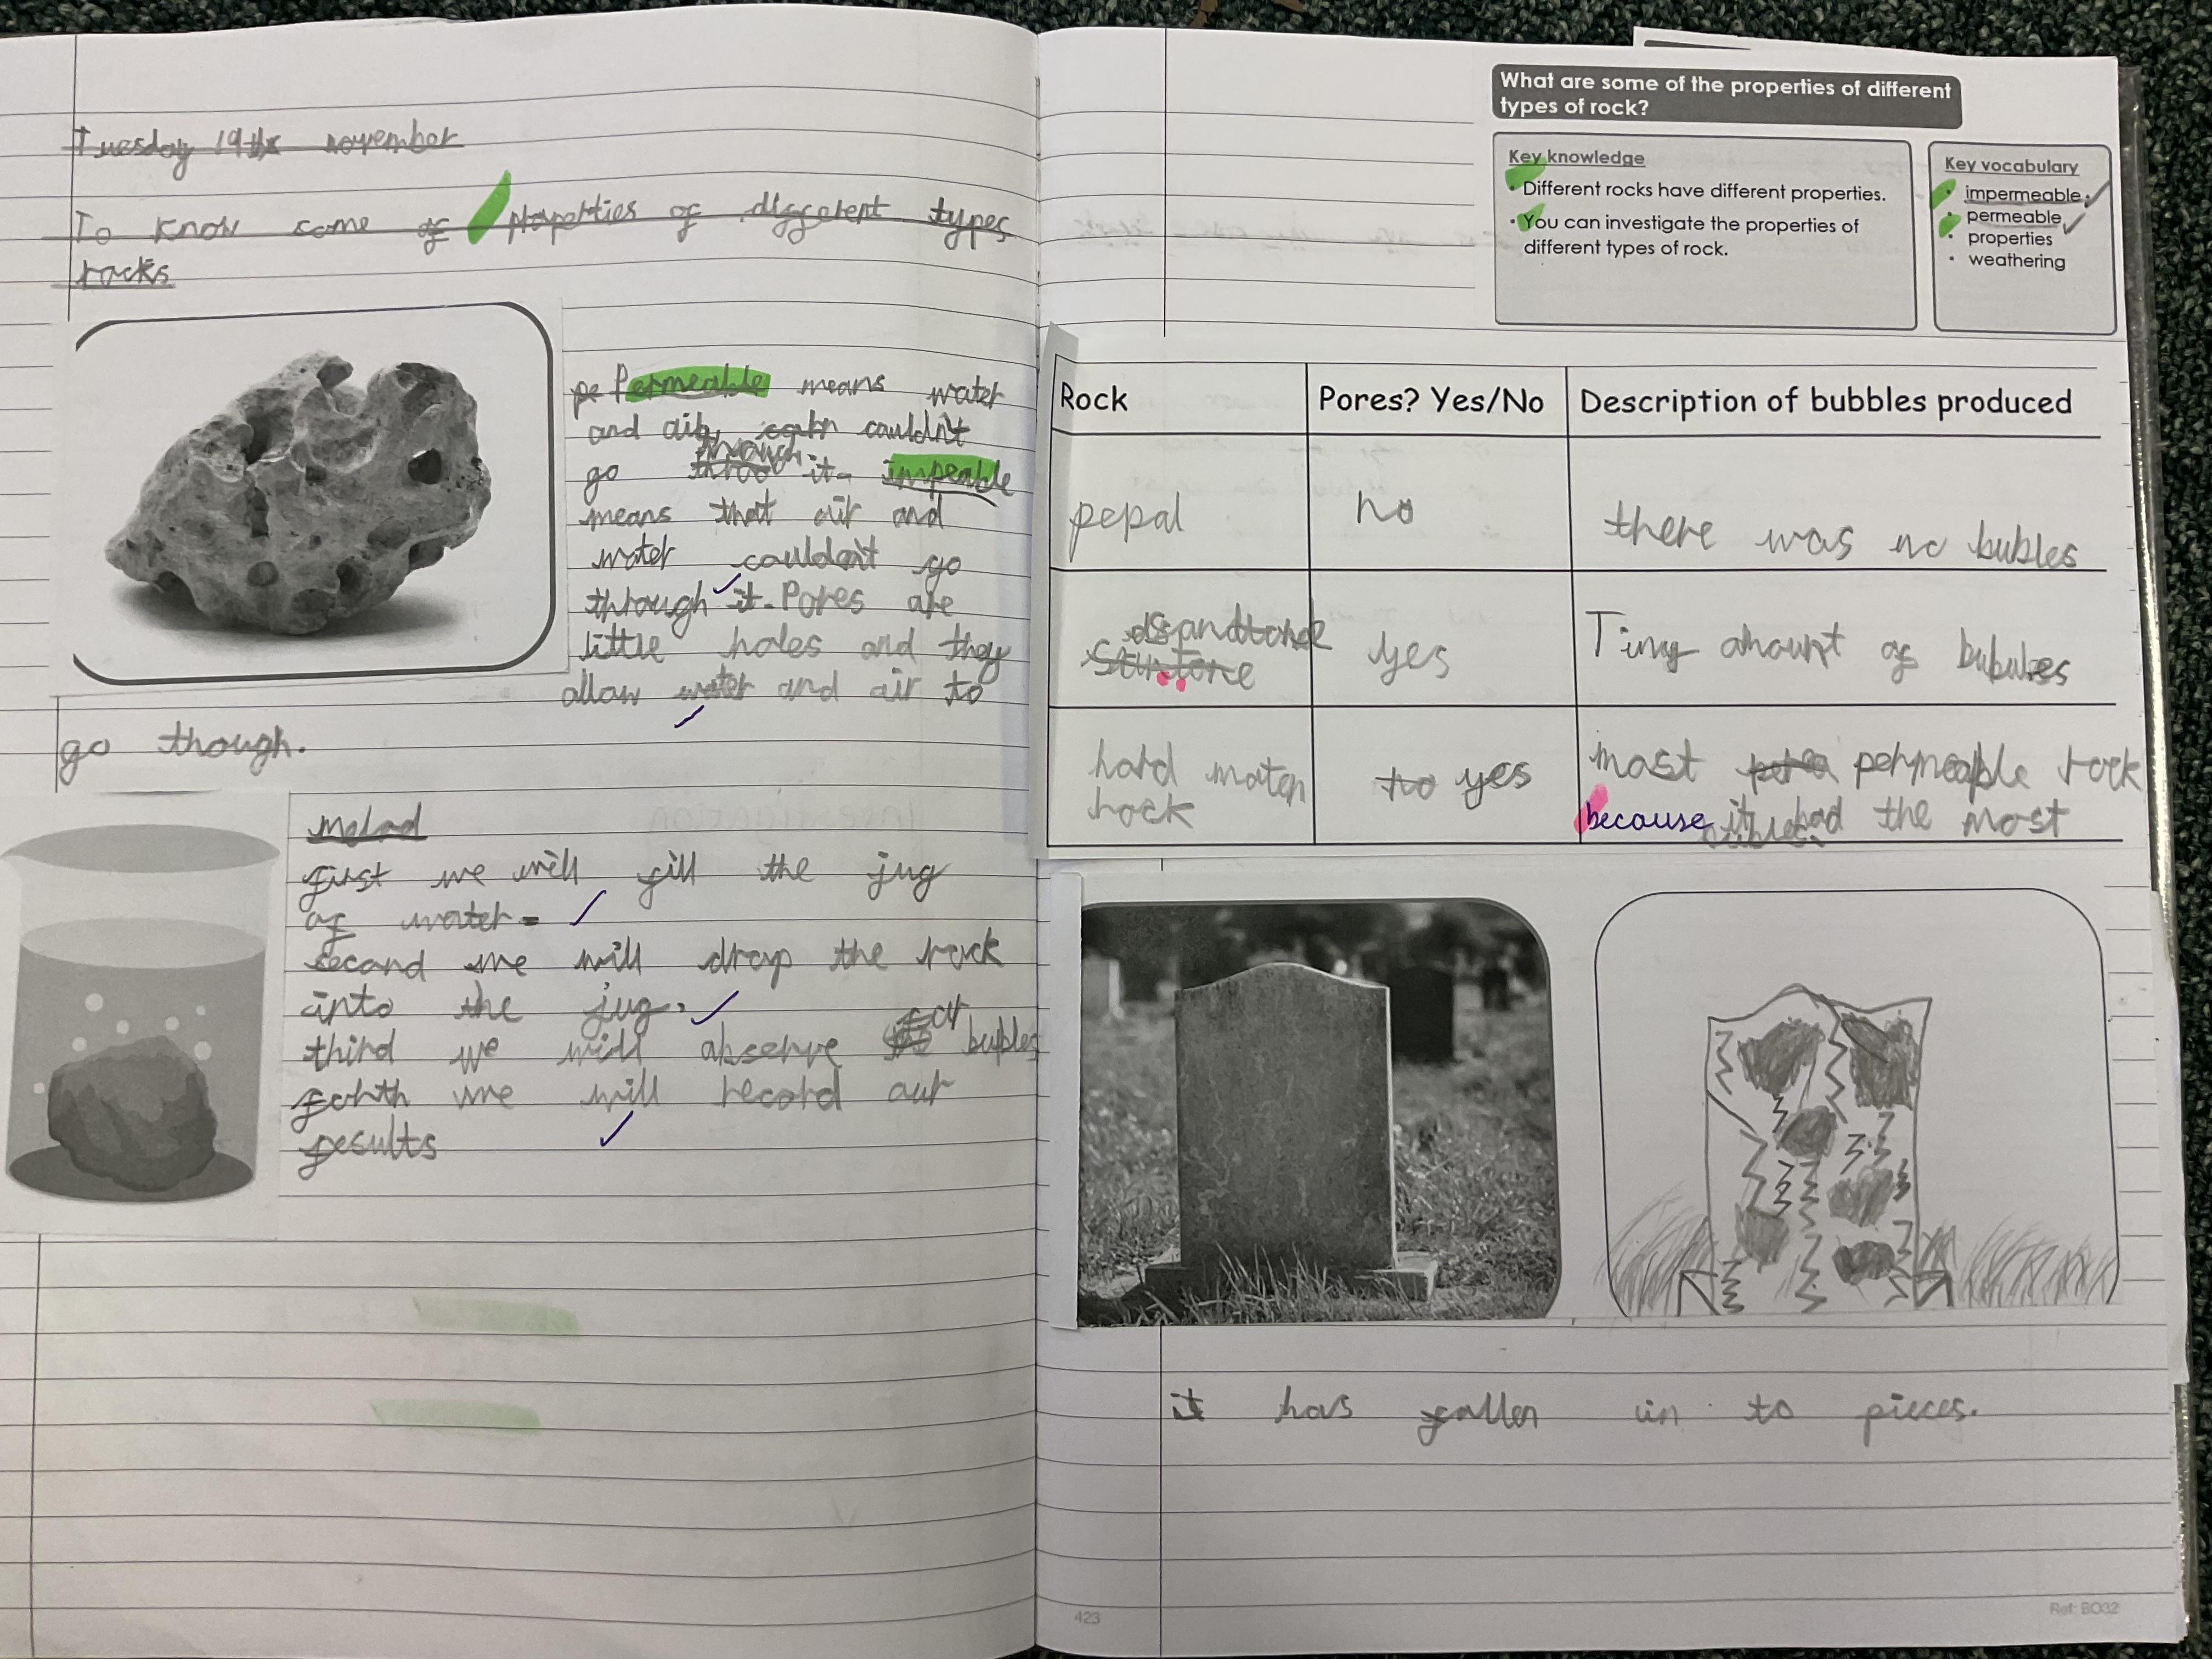 Tuesday 19th november
To know some of properties of different types
rocks
pe Permeable means water
and air couldn't
through
go throo it. impeable
means that air and
water couldn't go
through it. Pores are
little holes and they
allow water and air to
go though.
first we will fill the jug
of water.
second we will drop the rock
into the jug.
for
third we will observe bubles
forth we will record our
results
What are some of the properties of different
types of rock?
Key knowledge
• Different rocks have different properties.
• You can investigate the properties of
different types of rock.
Key vocabulary
• impermeable
• permeable
• properties
• weathering
Rock Pores? Yes/No Description of bubbles produced
pepal no there was no bubles
yes Tiny amount of bubules
hard maten no yes most permeable rock
rock because it had the most
it has fallen in to pieces.
423
Ref: BO32